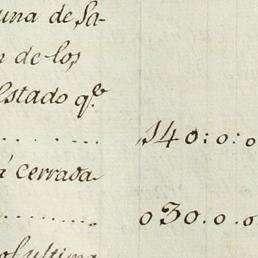 una de Sa-
n de los
Estado q.e
. . . . . . . 140:0:0
á cerrada
. . . . . . . 030.0.0
ol ultima